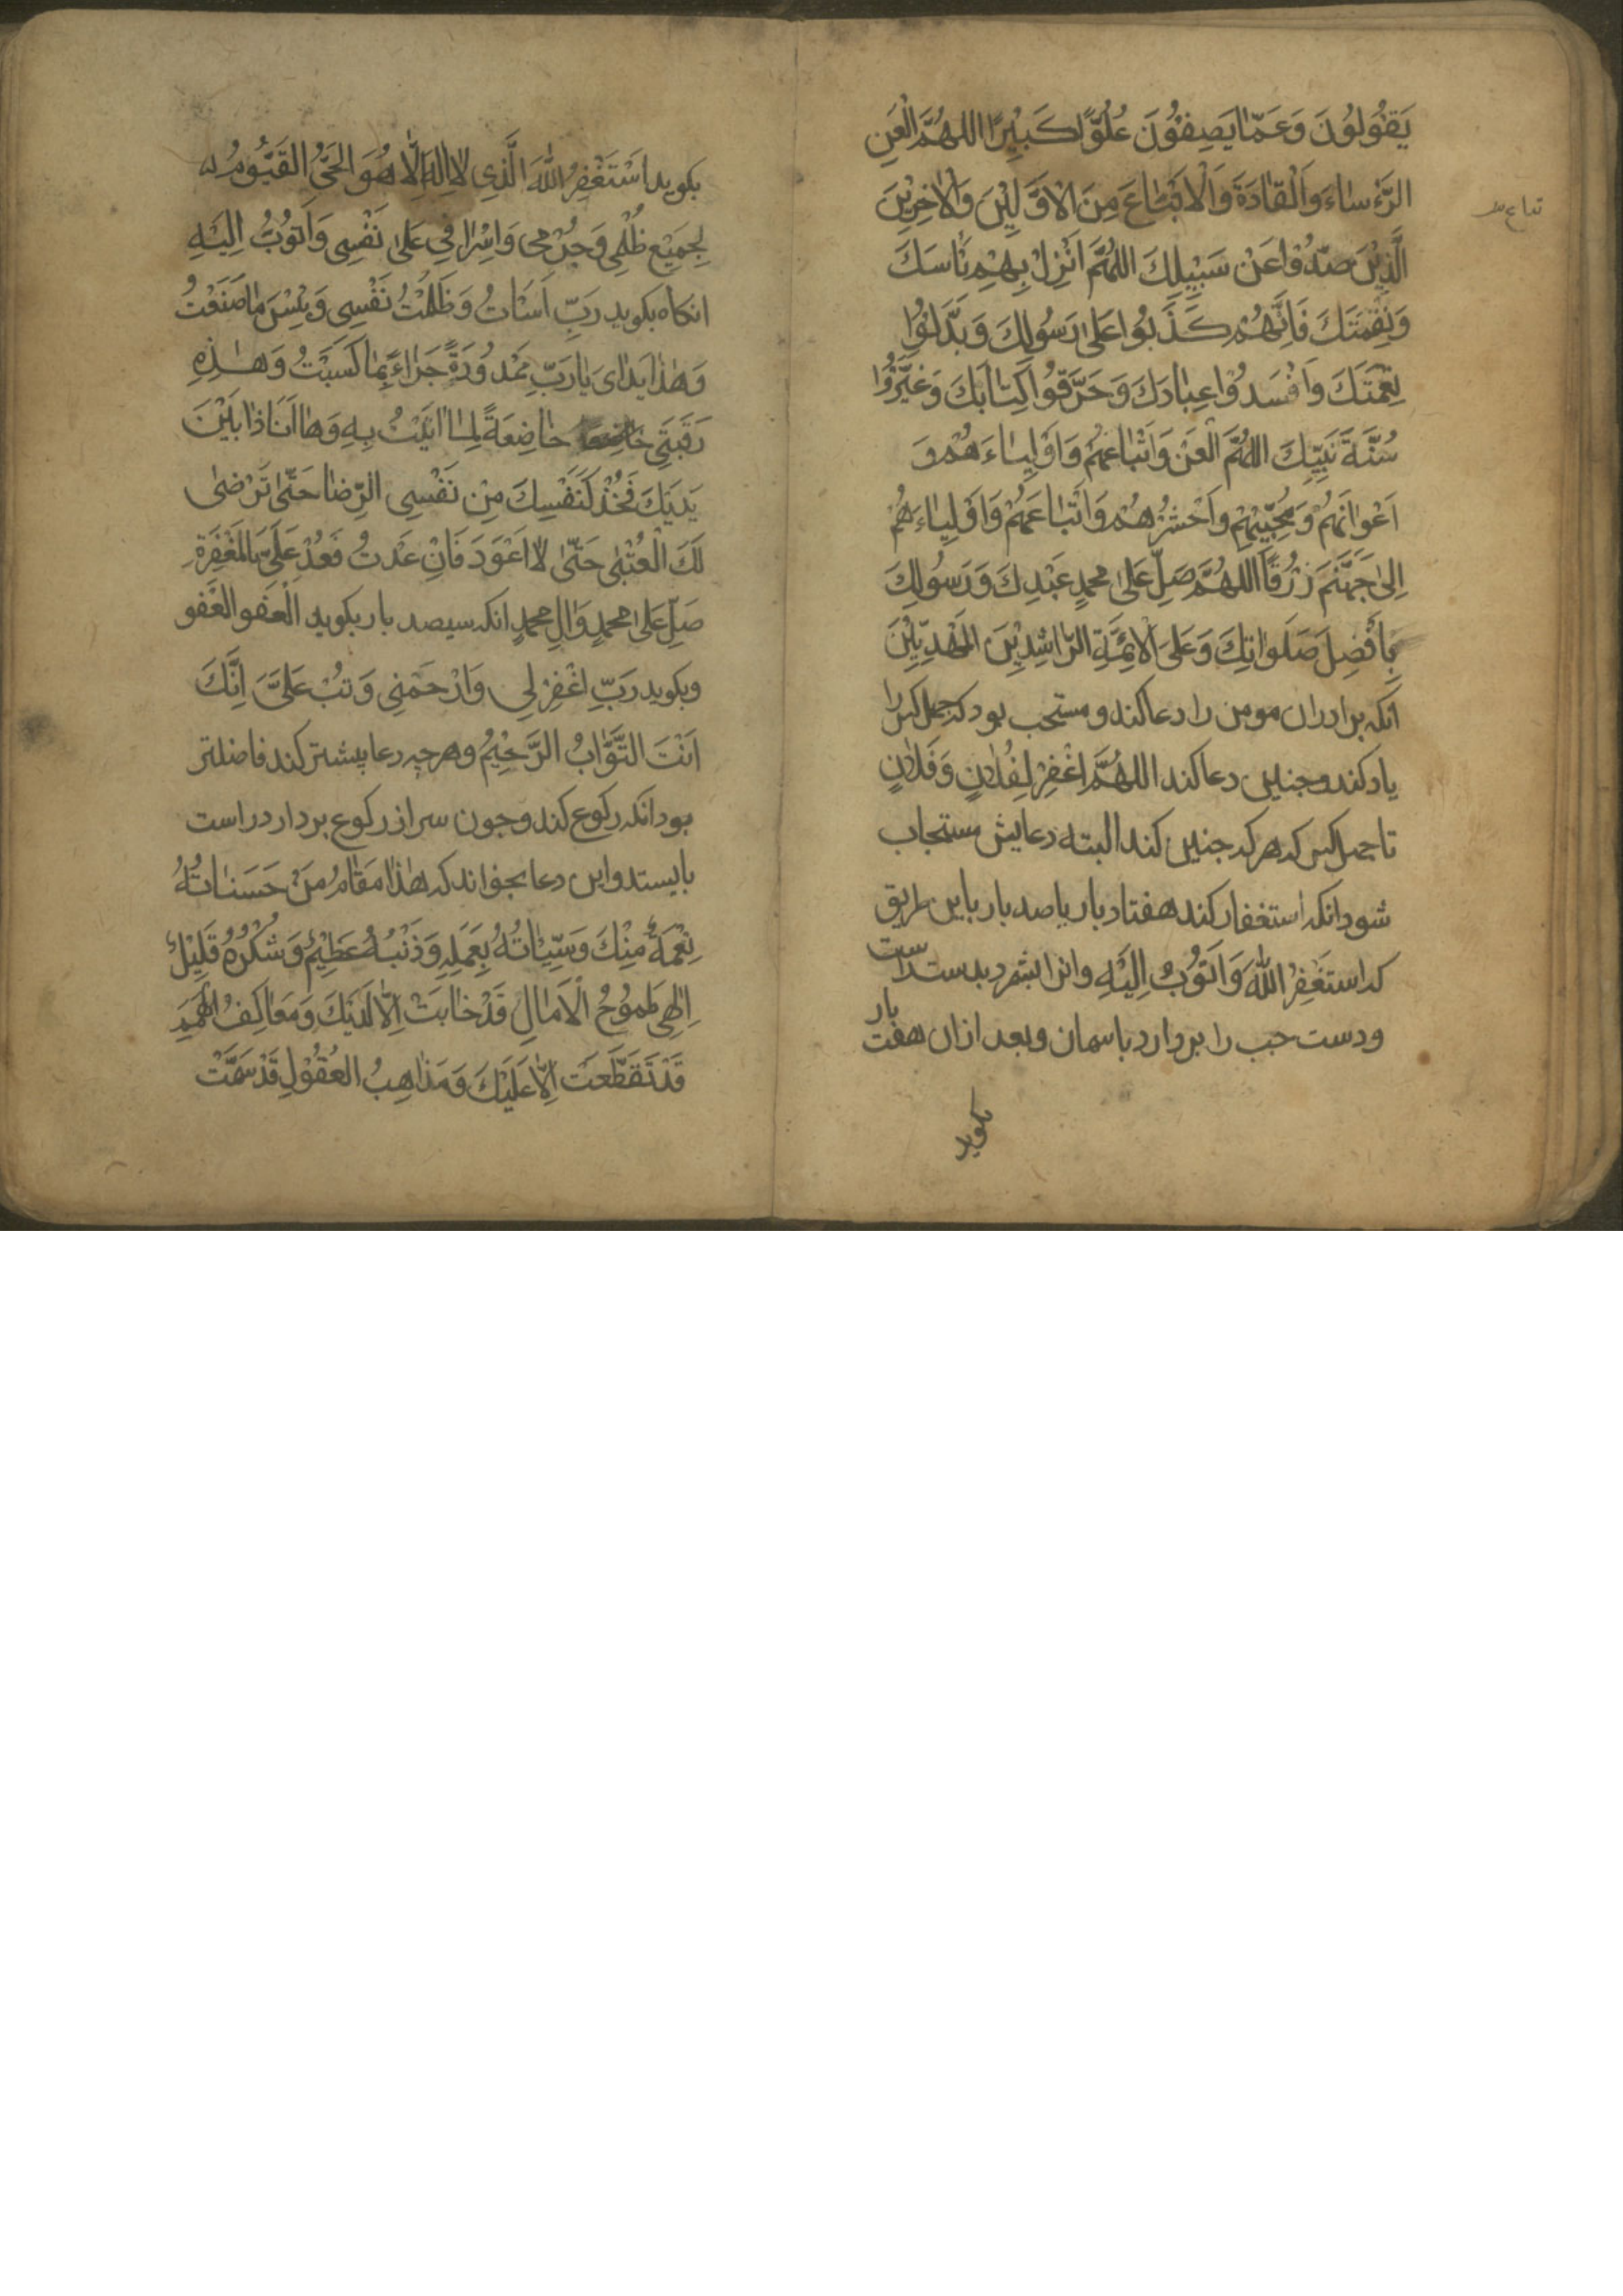 يَقُولُونَ وَعَمّا يَصِفُونَ عُلُوًّا كَبِيْرًا اللهُمَّ الْعَنِ
الرُّؤَساءَ وَالْقادَةَ وَالْاَتْباعَ مِنَ الْاَوَّلِيْنَ وَالْاٰخِرِيْنَ
الَّذِيْنَ صَدُّوْا عَنْ سَبِيْلِكَ اللهُمَّ اَنْزِلْ بِهِمْ بَاسَكَ
وَنِقْمَتَكَ فَاِنَّهُمْ كَذَّبُوا عَلىٰ رَسُولِكَ وَبَدَّلُوْا
نِعْمَتَكَ وَاَفْسَدُوْا عِبادَكَ وَحَرَّفُوْا كِتابَكَ وَغَيَّرُوْا
سُنَّةَ نَبِيِّكَ اللهُمَّ الْعَنْ وَاَتْباعَهُمْ وَاَوْلِياءَهُمْ وَ
اَعْوانَهُمْ وَمُحِبِّيْهِمْ وَاحْشُرْهُمْ وَاَتْباعَهُمْ وَاَوْلِياءَهُمْ
اِلىٰ جَهَنَّمَ زُرْقًا اللهُمَّ صَلِّ عَلىٰ محمدٍ عَبْدِكَ وَرَسُولِكَ
بِاَفْضِلَ صَلَواتِكَ وَعَلَى الْائِمَّةِ الرّاشِدِيْنَ الْمَهْدِيِّيْنَ
انكه برادران مومن را دعا كند و مستحب بود كه جهل كس را
ياد كند و جنين دعا كند اللهُمَّ اغْفِرْ لِفُلانٍ وَفَلانٍ
تا جهل كس كه هر كه جنين كند البته دعايش مستجاب
شود انكه استغفار كند هفتاد بار يا صد بار باين طريق
كه استَغْفِرُ اللهَ وَاَتُوْبُ اِلَيْهِ وانرا بشمرد بدست راست
ودست جب را بردارد باسمان وبعد ازان هفت بار
بكويد
بكويد اَسْتَغْفِرُ اللهَ الَّذِي لا اِلٰهَ اِلَّا هُوَ الحَيُّ القَيُّومُ
لِجَمِيْعِ ظُلْمِي وَجُرْمِي وَاِسْرافِي عَلىٰ نَفْسِي وَاَتُوْبُ اِلَيْهِ
انكاه بكويد رَبِّ اَسَاْتُ وَظَلَمْتُ نَفْسِي وَبِئْسَ ما صَنَعْتُ
وَهٰذا يَداىَ يا رَبِّ مَمْدُوْدَةً جَزاءً بِما كَسَبَتْ وَهٰذِهِ
رَقَبَتِي خاضِعَةً لِما اَتَيْتُ بِهِ وَها اَنَا ذا بَيْنَ
يَدَيْكَ فَخُذْ لَنَفْسِكَ مِنْ نَفْسِي الرِّضا حَتّىٰ تَرْضىٰ
لَكَ الْعُتْبىٰ حَتّىٰ لا اَعُوْدَ فَاِنْ عَدْتُ فَعُدْ عَلَيَّ بالمَغْفَرَةِ
صَلِّ عَلىٰ محمدٍ وَالِ محمدٍ انكه سيصد بار بكويد الْعَفو العَفو
وبكويد رَبِّ اغْفِرْ لِي وَارْحَمْنِي وَتُبْ عَلَيَّ اِنَّكَ
اَنْتَ التَّوّابُ الرَّحِيْمُ وهرجه دعا بيشتر كند فاضلتر
بود انكه ركوع كند وجون سر از ركوع بردارد راست
بايستد واين دعا بخواند كه هٰذا مَقامُ مَنْ حَسَناتُهُ
نِعْمَةٌ مِنْكَ وَسَيِّاتُهُ بِعَمَلِهِ وَذَنْبُهُ عَظِيْمٌ وَشُكْرُهُ قَلِيْلٌ
اِلٰهِي طُمُوْحُ الْاٰمالِ قَدْ خابَتْ اِلّا لَدَيْكَ وَمَعاكِفُ الْهِمَمِ
قَدْ تَقَطَّعَتْ اِلّا عَلَيْكَ وَمَذاهِبُ العُقُوْلِ قَدْ سَمَتْ